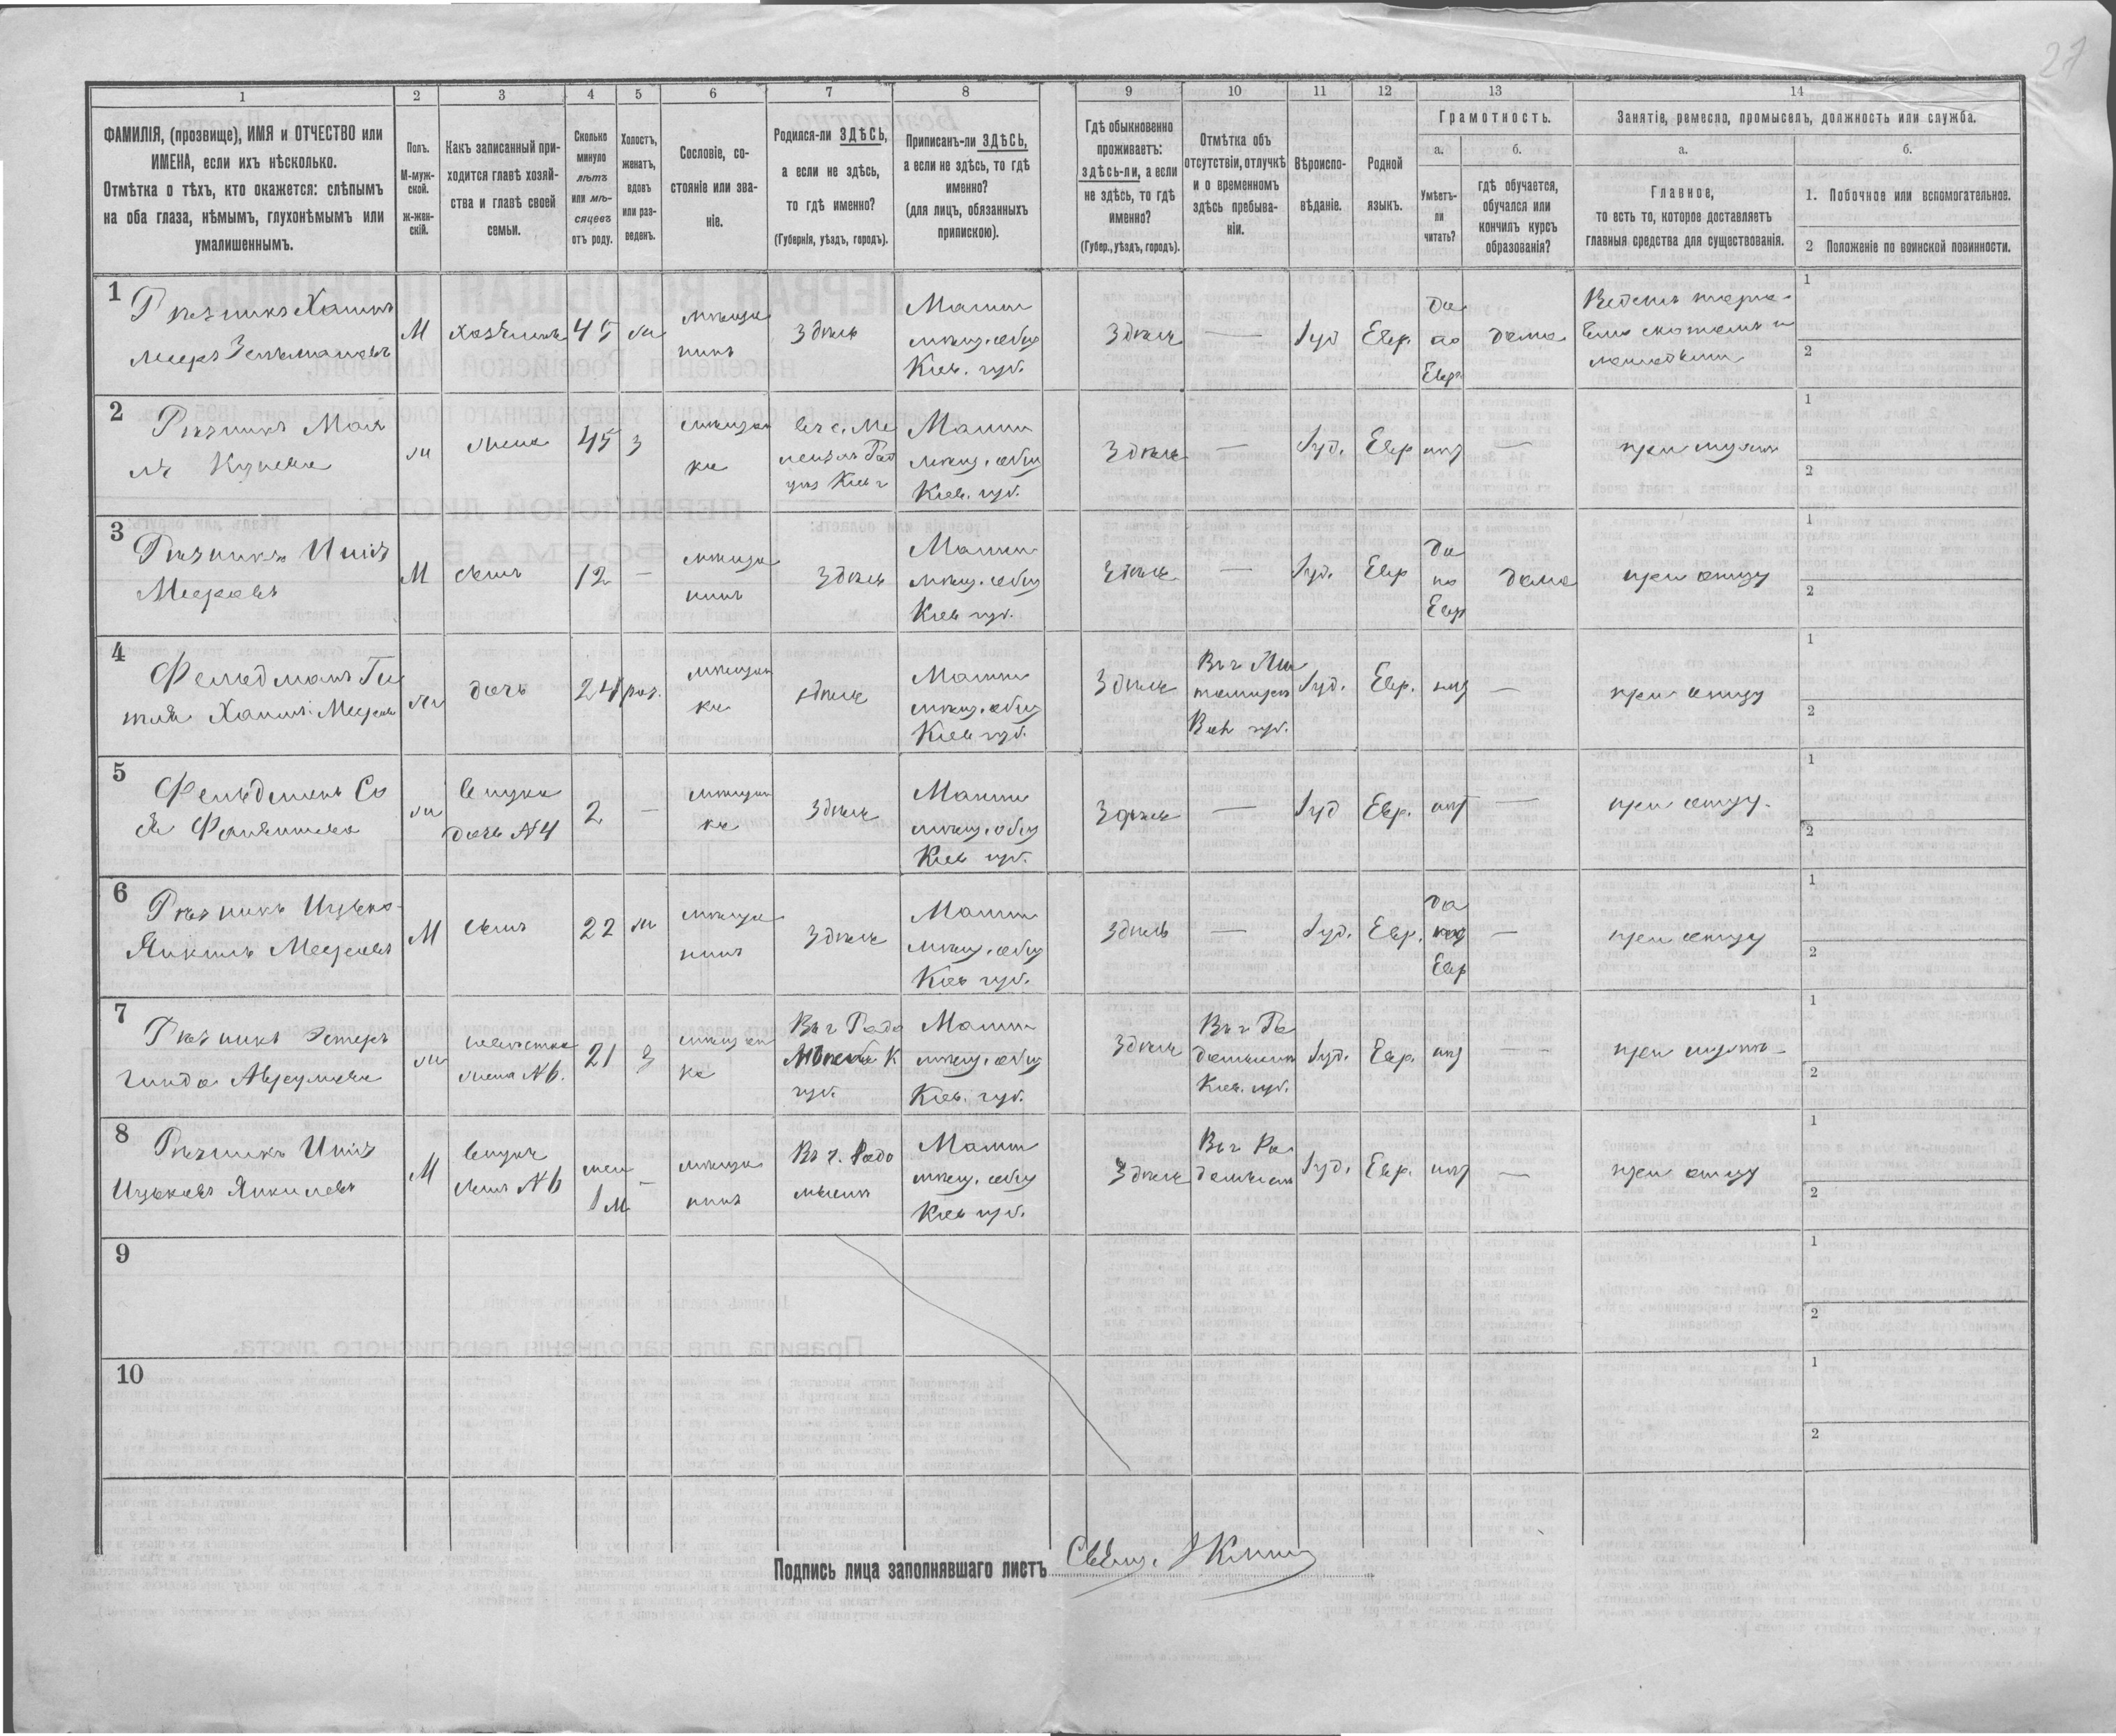 27
1 2 3 4 5 6 7 8 9 10 11 12 13 14
ФАМИЛІЯ, (прозвище), ИМЯ и ОТЧЕСТВО или
ИМЕНА, если ихъ нѣсколько.
Отмѣтка о тѣхъ, кто окажется: слѣпымъ
на оба глаза, нѣмымъ, глухонѣмымъ или
умалишеннымъ.
Полъ.
М-муж-
ской.
ж-жен-
скій.
Какъ записанный при-
ходится главѣ хозяй-
ства и главѣ своей
семьи.
Сколько
минуло
лѣтъ
или мѣ-
сяцевъ
отъ роду.
Холостъ,
женатъ,
вдовъ
или раз-
веденъ.
Сословіе, со-
стояніе или зва-
ніе.
Родился-ли ЗДѢСЬ,
а если не здѣсь,
то гдѣ именно?
(Губернія, уѣздъ, городъ).
Приписанъ-ли ЗДѢСЬ,
а если не здѣсь, то гдѣ
именно?
(для лицъ, обязанныхъ
припискою).
Гдѣ обыкновенно
проживаетъ:
здѣсь-ли, а если
не здѣсь, то гдѣ
именно?
(Губер., уѣздъ, городъ).
Отмѣтка объ
отсутствіи, отлучкѣ
и о временномъ
здѣсь пребыва-
ніи.
Вѣроиспо-
вѣданіе.
Родной
языкъ.
Грамотность.
а.
Умѣетъ-
ли
читать?
б.
гдѣ обучается,
обучался или
кончилъ курсъ
образованія?
Занятіе, ремесло, промыселъ, должность или служба.
а.
Главное,
то есть то, которое доставляетъ
главныя средства для существованія.
б.
1. Побочное или вспомогательное.
2 Положеніе по воинской повинности.
1
Рѣзникъ Хаимъ
Мееръ Зельмановъ
М
хозяинъ
45
ж
мѣща
нинъ
Здѣсь
Малин
мѣщ. общ
Кіев. губ.
Здѣсь
—
Іуд
Евр.
Да
по
Евр.
дома
Ведетъ торго-
влю скотомъ и
лошадьми
1
2
2
Рѣзникъ Мал
ка
ж
жена
45
з
мѣщан
ка
Малин
мѣщ. общ
Кіев. губ.
Здѣсь
—
Іуд.
Евр
нѣт
—
при мужѣ
1
2
3
Рѣзникъ Иція
Мееровъ
М
сынъ
12
—
мѣща
нинъ
Здѣсь
Малин
мѣщ. общ
Кіев губ.
Здѣсь
—
Іуд.
Евр
Да
по
Евр
дома
при отцу
1
2
4
Фельдманъ Ги
тля Хаимъ Меерова
ж
дочь
24
раз.
мѣщан
ка
здѣсь
Малин
мѣщ. общ
Кіев губ.
Здѣсь
Въ г Жи
томирѣ
Вол губ.
Іуд.
Евр.
нѣт
—
при отцу
1
2
5
Фельдманъ Со
ж
внука
дочь №4
2
—
мѣщан
ка
Здѣсь
Малин
мѣщ. общ
Кіев губ.
Здѣсь
—
Іуд
Евр.
нѣт
—
при отцу.
1
2
6
Рѣзникъ Ицько-
Янкель Мееровъ
М
сынъ
22
ж
мѣща
нинъ
Здѣсь
Малин
мѣщ. общ
Кіев губ.
Здѣсь
—
Іуд.
Евр.
Да
Евр
—
при отцу
1
2
7
Рѣзникъ Эстеръ
ж
невѣстка
жена №6.
21
З
мѣщан
ка
Въ г Радо
К
губ.
Малин
мѣщ. общ
Кіев. губ.
Здѣсь
Въ г Ра
домыслѣ
Кіев. губ.
Іуд.
Евр.
нѣт
—
при мужѣ
1
2
8
Рѣзникъ Иція
Ицьковъ Янкелевъ
М
внукъ
сынъ №6
1 м
—
мѣща
нинъ
Въ г. Радо
мыслѣ
Малин
мѣщ. общ
Кіев губ.
Здѣсь
Въ г Ра
домыслѣ
Іуд.
Евр.
нѣт
—
при отцу
1
2
9
1
2
10
1
2
Подпись лица заполнявшаго листъ